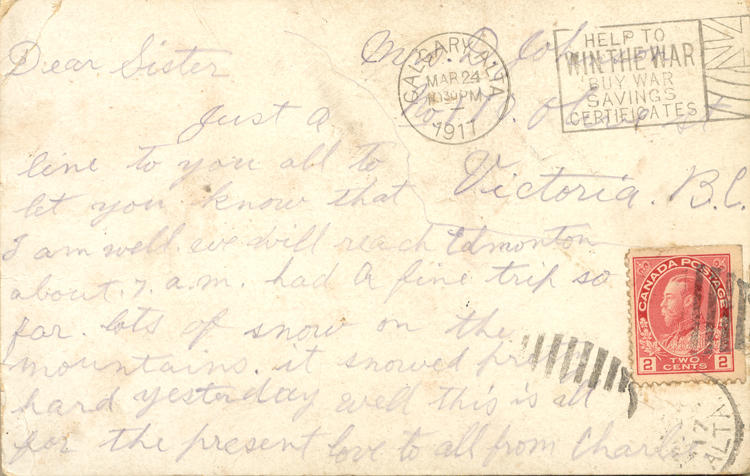 Dear Sister
Just a
line to you all to
let you know that
I am well. we will reach Edmonton
about. 7. a.m. had a fine trip so
far. lots of snow on the
mountains. it snowed
hard yesterday well this is all
for the present love to all from Charlie
Mrs. D. Johnson
Victoria. B.C.
CALGARY ALTA
MAR 24
10 30 PM
1917
HELP TO
WIN THE WAR
BUY WAR
SAVINGS
CERTIFICATES
CANADA POSTAGE
2 TWO 2
CENTS
17
ALTA